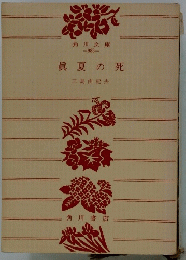 角川文庫
眞夏の死
三島由紀夫
角川書店